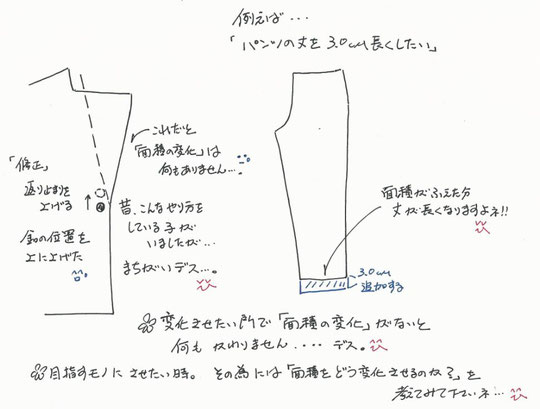 例えば・・・
「パンツの丈を 3.0cm 長くしたい」
これだと
「面積の変化」は
何もありません…。
「修正」
返り止まりを
上げる
釦の位置を
上に上げた
昔、こんなやり方を
している子が
いましたが…
まちがいデス…。
面積がふえた分
丈が長くなりますよネ!!
3.0cm
追加する
変化させたい所で「面積の変化」がないと
何も変わりません・・・・デス。
目指すモノにさせたい時。その為には「面積をどう変化させるのか?」を
考えてみて下さいネ…